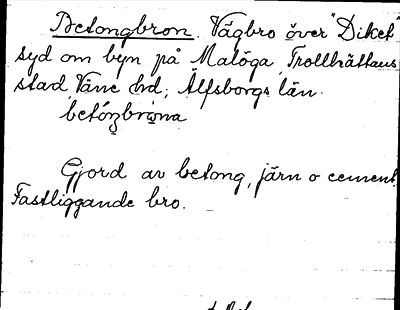 Betongbron. Vägbro över "Diket"
syd om byn på Malöga, Trollhättans
stad, Väne hd; Älfsborgs län.
betóŋbrωna
Gjord av betong, järn o cement.
Fastliggande bro.